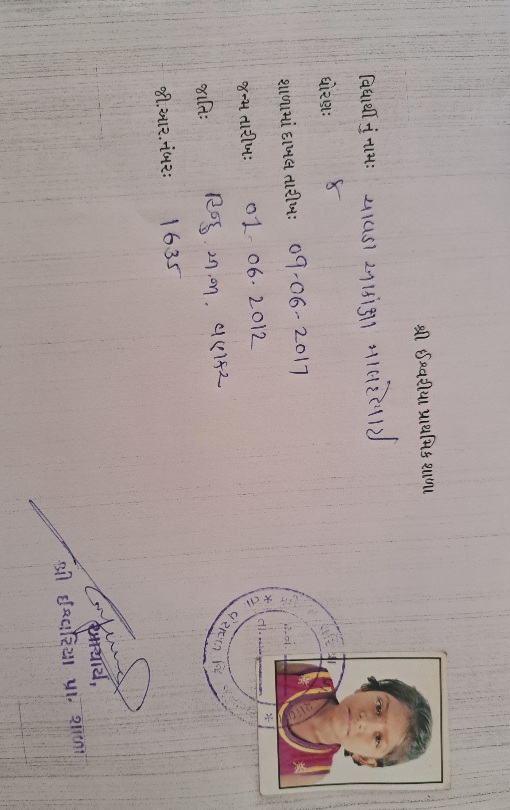 શ્રી ઈશ્વરીયા પ્રાથમિક શાળા
વિદ્યાર્થી નું નામ: ચાવડા આકાંક્ષા
ધોરણ: ૬
શાળામાં દાખલ તારીખ: ૦૧-૦6-૨૦1૭
જન્મ તારીખ: ૦1.૦6.2૦12
જાતિ: હિન્દુ. અ.જા. વણકર
જી.આર.નંબર: 1635
આચાર્ય,
શ્રી ઈશ્વરિયા પ્રા. શાળા